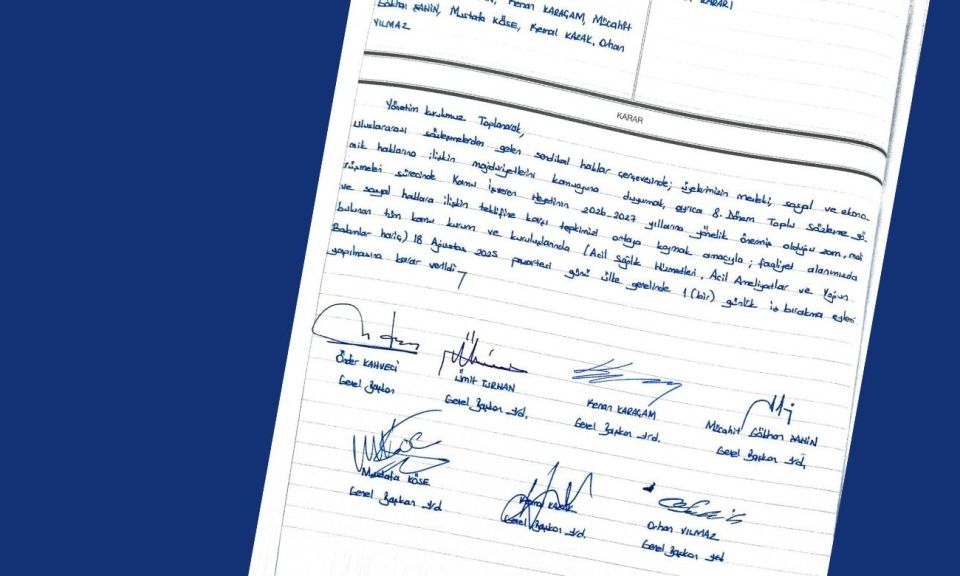 Kenan KARAGAM, Mücahit
Gökhan ŞAHİN, Mustafa KÖSE, Kemal KAZAK, Orhan
YILMAZ
KARARI
KARAR
Yönetim kurulumuz Toplanarak,
Uluslararası sözleşmelerden gelen sendikal haklar çerçevesinde; üyelerimizin mesleki, sosyal ve ekono-
mik haklarına ilişkin mağduriyetlerini kamuoyuna duyurmak, ayrıca 8. Dönem Toplu Sözleşme gö-
rüşmeleri sürecinde Kamu İşveren Heyetinin 2026-2027 yıllarına yönelik önemin olduğu zam, mali
ve sosyal haklara ilişkin teklifine karşı tepkimizi ortaya koymak amacıyla; faaliyet alanımızda
bulunan tüm kamu kurum ve kuruluşlarında (Acil Sağlık Hizmetleri, Acil Ameliyatlar ve Yoğun
Bakımlar hariç) 18 Ağustos 2025 pazartesi günü ülke genelinde 1 (bir) günlük iş bırakma eylemi
yapılmasına karar verildi
Önder KAHVECİ
Genel Başkan
Ümit TURHAN
Genel Başkan Yrd.
Kenan KARAGAM
Genel Başkan Yrd.
Mücahit Gökhan ŞAHİN
Genel Başkan Yrd.
Mustafa KÖSE
Genel Başkan Yrd
Kemal KAZAK
Genel Başkan Yrd.
Orhan YILMAZ
Genel Başkan Yrd